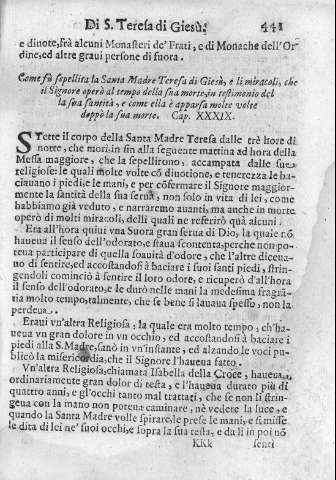 Di S. Teresa di Giesù. 441
e diuote, frà alcuni Monasteri de' Frati, e di Monache dell'Or-
dine, ed altre graui persone di fuora.
Come fù sepellita la Santa Madre Teresa di Giesù, e li miracoli, che
il Signore operò al tempo della sua morte, in testimonio del
la sua santità, e come ella è apparsa molte volte
doppò la sua morte. Cap. XXXIX.
STette il corpo della Santa Madre Teresa dalle trè hore di
notte, che morì, in sin alla seguente mattina ad hora della
Messa maggiore, che la sepellirono, accompata dalle sue
religiose: le quali molte volte cō diuotione, e tenerezza le ba-
ciauano i piedi, e le mani, e per cōfermare il Signore maggior-
mente la santità della sua serua, non solo in vita di lei, come
habbiamo già veduto, e narraremo auanti, ma anche in morte
operò di molti miracoli, delli quali ne referirò quà alcuni.
Era all'hora quiui vna Suora gran serua di Dio, la quale nō
haueua il senso dell'odorato, e staua scontenta, perche non po-
teua participare di quella soauità d'odore, che l'altre diceua-
no di sentire, ed accostandosi à baciare i suoi santi piedi, strin-
gendoli cominciò à sentire il loro odore, e ricuperò d'all'hora
il senso dell'odorato, e le durò nelle mani la medesima fragrā-
tia molto tempo, talmente, che se bene si lauaua spesso, non la
perdeua.
Eraui vn'altra Religiosa, la quale era molto tempo, ch'ha-
ueua vn gran dolore in vn occhio, ed accostandosi à baciare i
piedi alla S. Madre, sanò in vn'instante, ed alzando le voci pu-
blicò la misericordia, che il Signore l'haueua fatto.
Vn'altra Religiosa, chiamata Isabella della Croce, haueua
ordinariamente gran dolor di testa, e l'haueua durato più di
quattro anni, e gl'occhi tanto mal trattati, che se non li strin-
geua con la mano non poteua caminare, nè vedere la luce, e
quando la Santa Madre volse spirare, le prese le mani, e si misse
le dita di lei nè suoi occhi, e sopra la sua testa, e da lì in poi nō
KKk senti